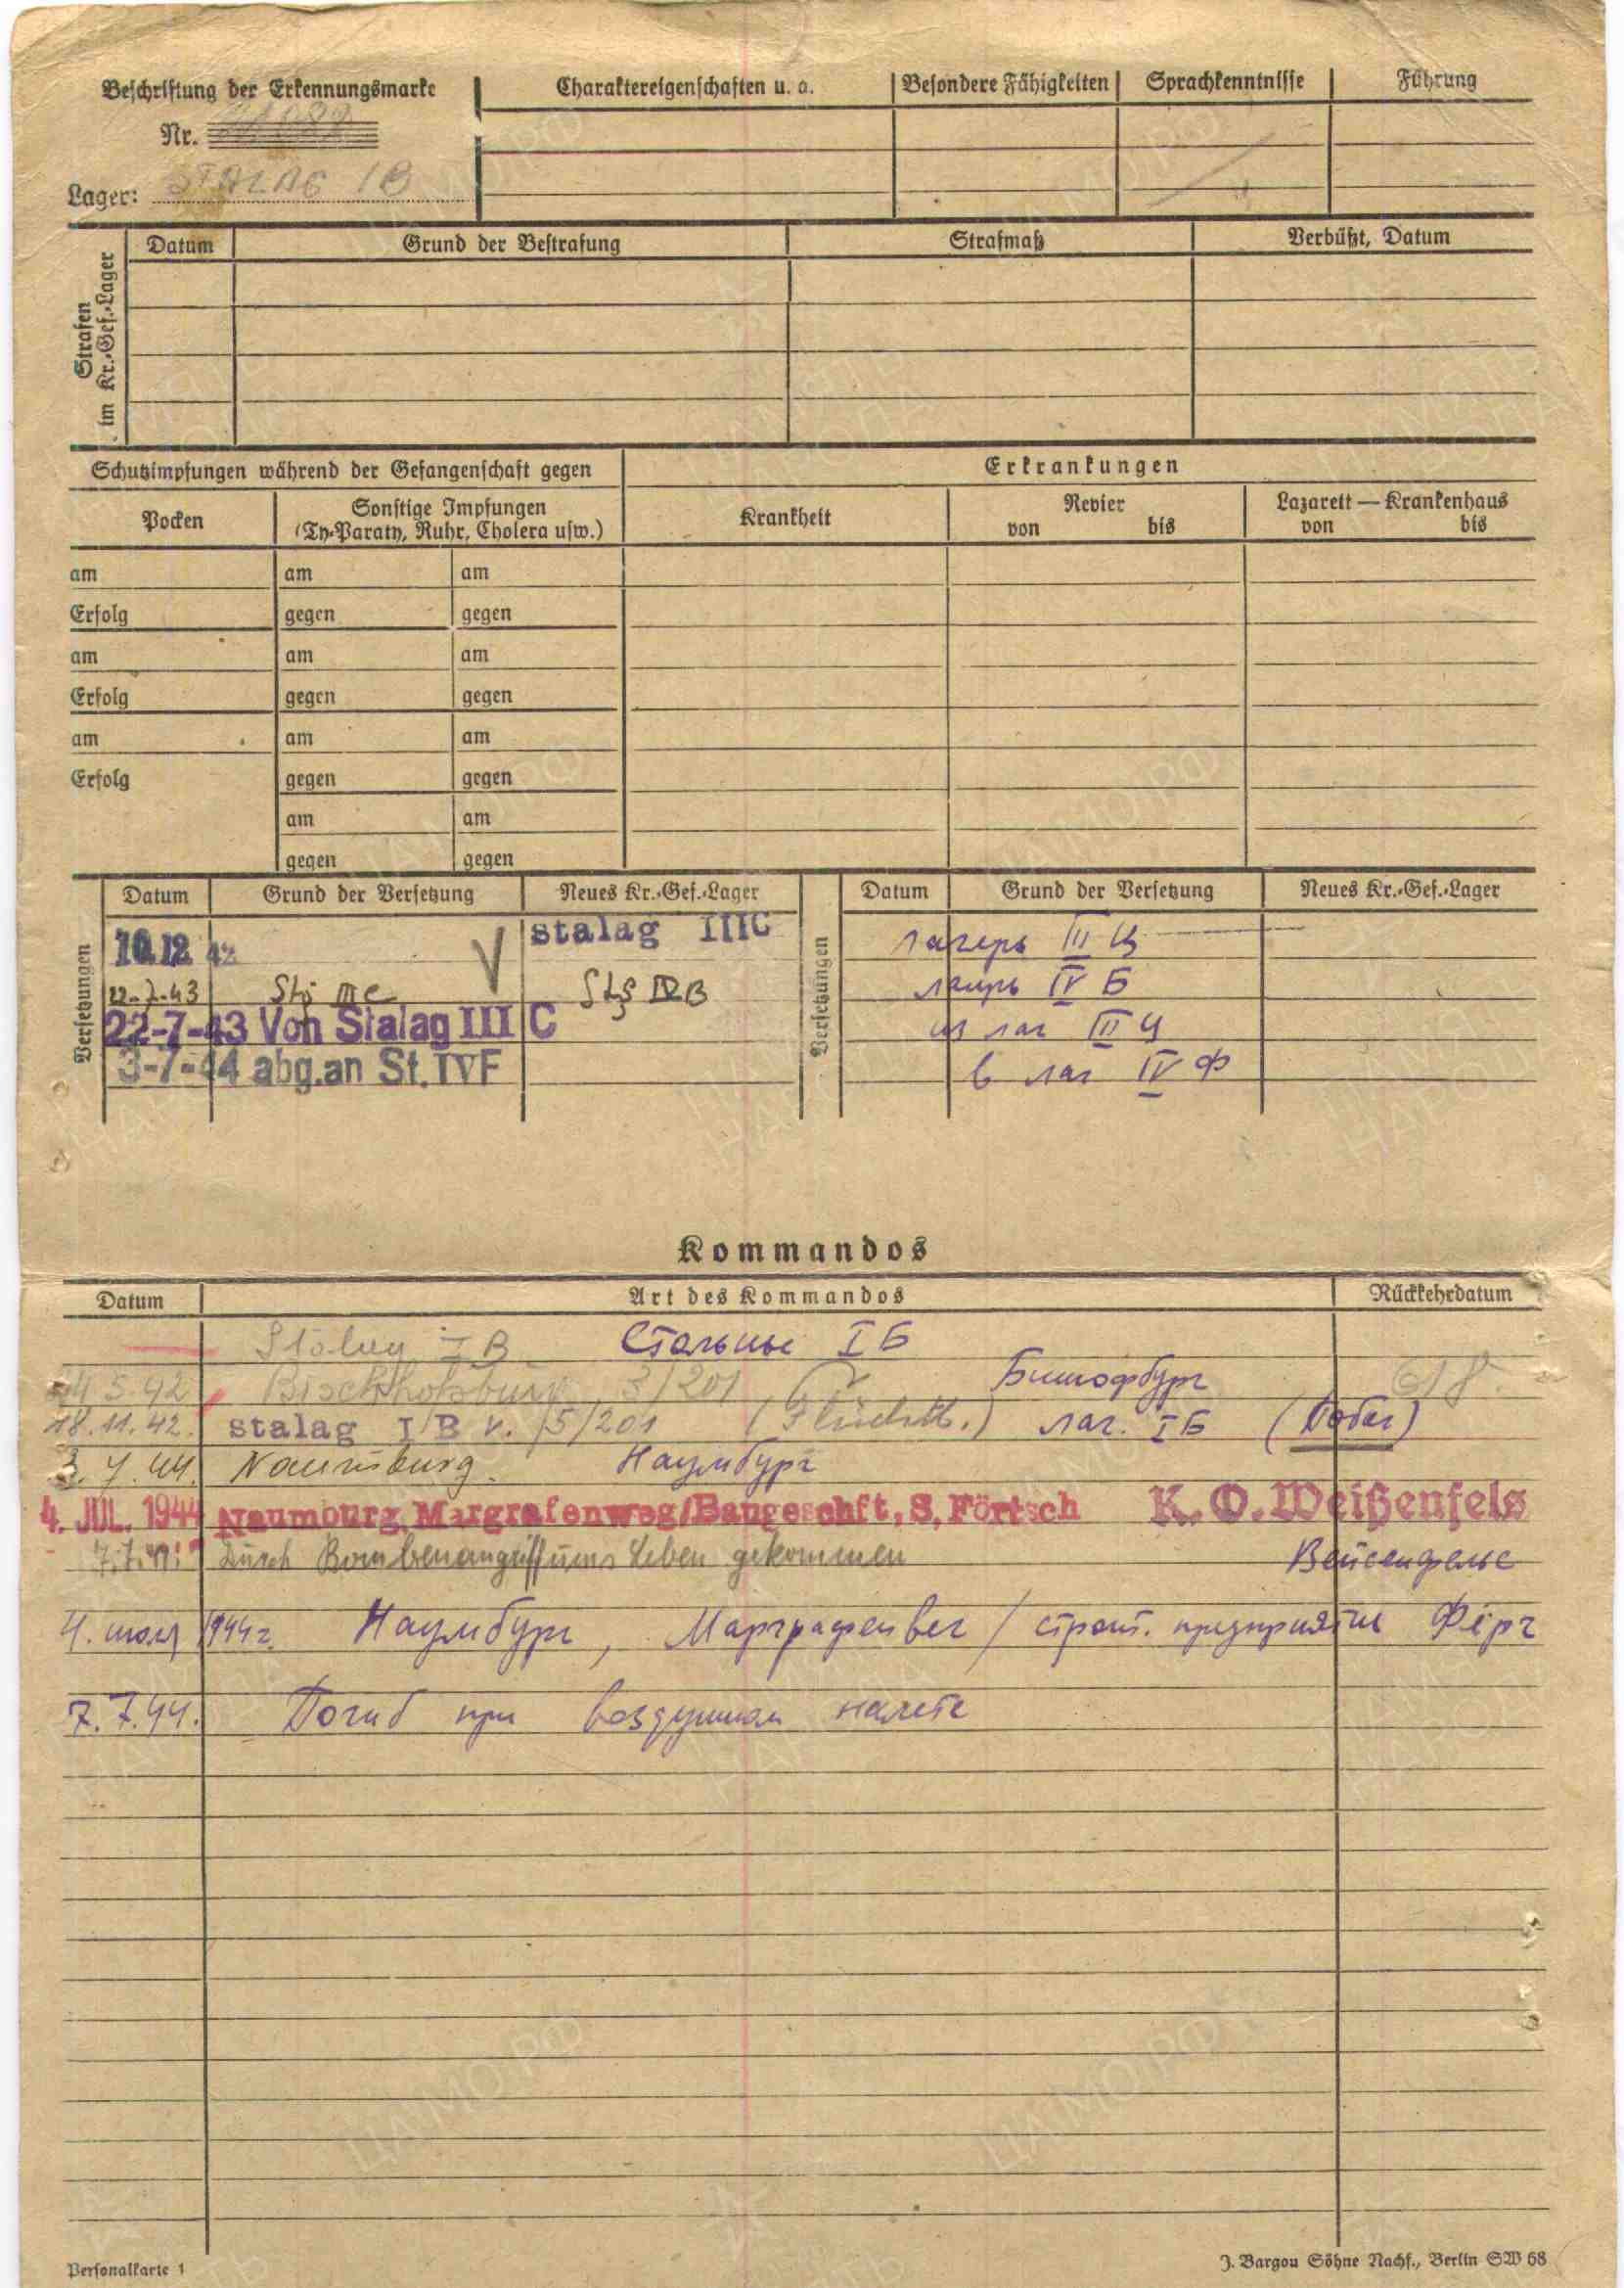 Beschriftung der Erkennungsmarke Charaktereigenschaften u. a. Besondere Fähigkeiten Sprachkenntnisse Führung
Nr.
Lager: STALAG IB
Strafen im Kr.-Gef.-Lager
Datum Grund der Bestrafung Strafmaß Verbüßt, Datum
Schutzimpfungen während der Gefangenschaft gegen Erkrankungen
Pocken Sonstige Impfungen Krankheit Revier Lazarett — Krankenhaus
(Ty-Paraty, Ruhr, Cholera usw.) von bis von bis
am am am
Erfolg gegen gegen
am am am
Erfolg gegen gegen
am am am
Erfolg gegen gegen
am am
gegen gegen
Versetzungen Datum Grund der Versetzung Neues Kr.-Gef.-Lager Versetzungen Datum Grund der Versetzung Neues Kr.-Gef.-Lager
10.12 42 stalag IIIC лагерь III Ц
22-7-43 Stg IIIC Stg IVB лагерь IV Б
22-7-43 Von Stalag III C из лаг III Ц
3-7-44 abg.an St. IVF в лаг IV Ф
Kommandos
Datum Art des Kommandos Rückkehrdatum
Stalag IB IБ
5.42 3/201 Бишофбург
18.11.42. stalag IB v. 5/201 лаг. IБ (Побег)
3.7.44. Naumburg. Наумбург
4. JUL. 1944 Naumburg Margrafenweg/Baugeschft, S, Förtsch K. O. Weißenfels
7.7.44 Durch Bombenangriff ums Leben gekommen Вейсенфельс
4. июля 1944г. Наумбург, Марграфенвег / строит. предприятие Фёрч
7.7.44. Погиб при воздушном налете
Personalkarte 1 J. Bargou Söhne Nachf., Berlin SW 68